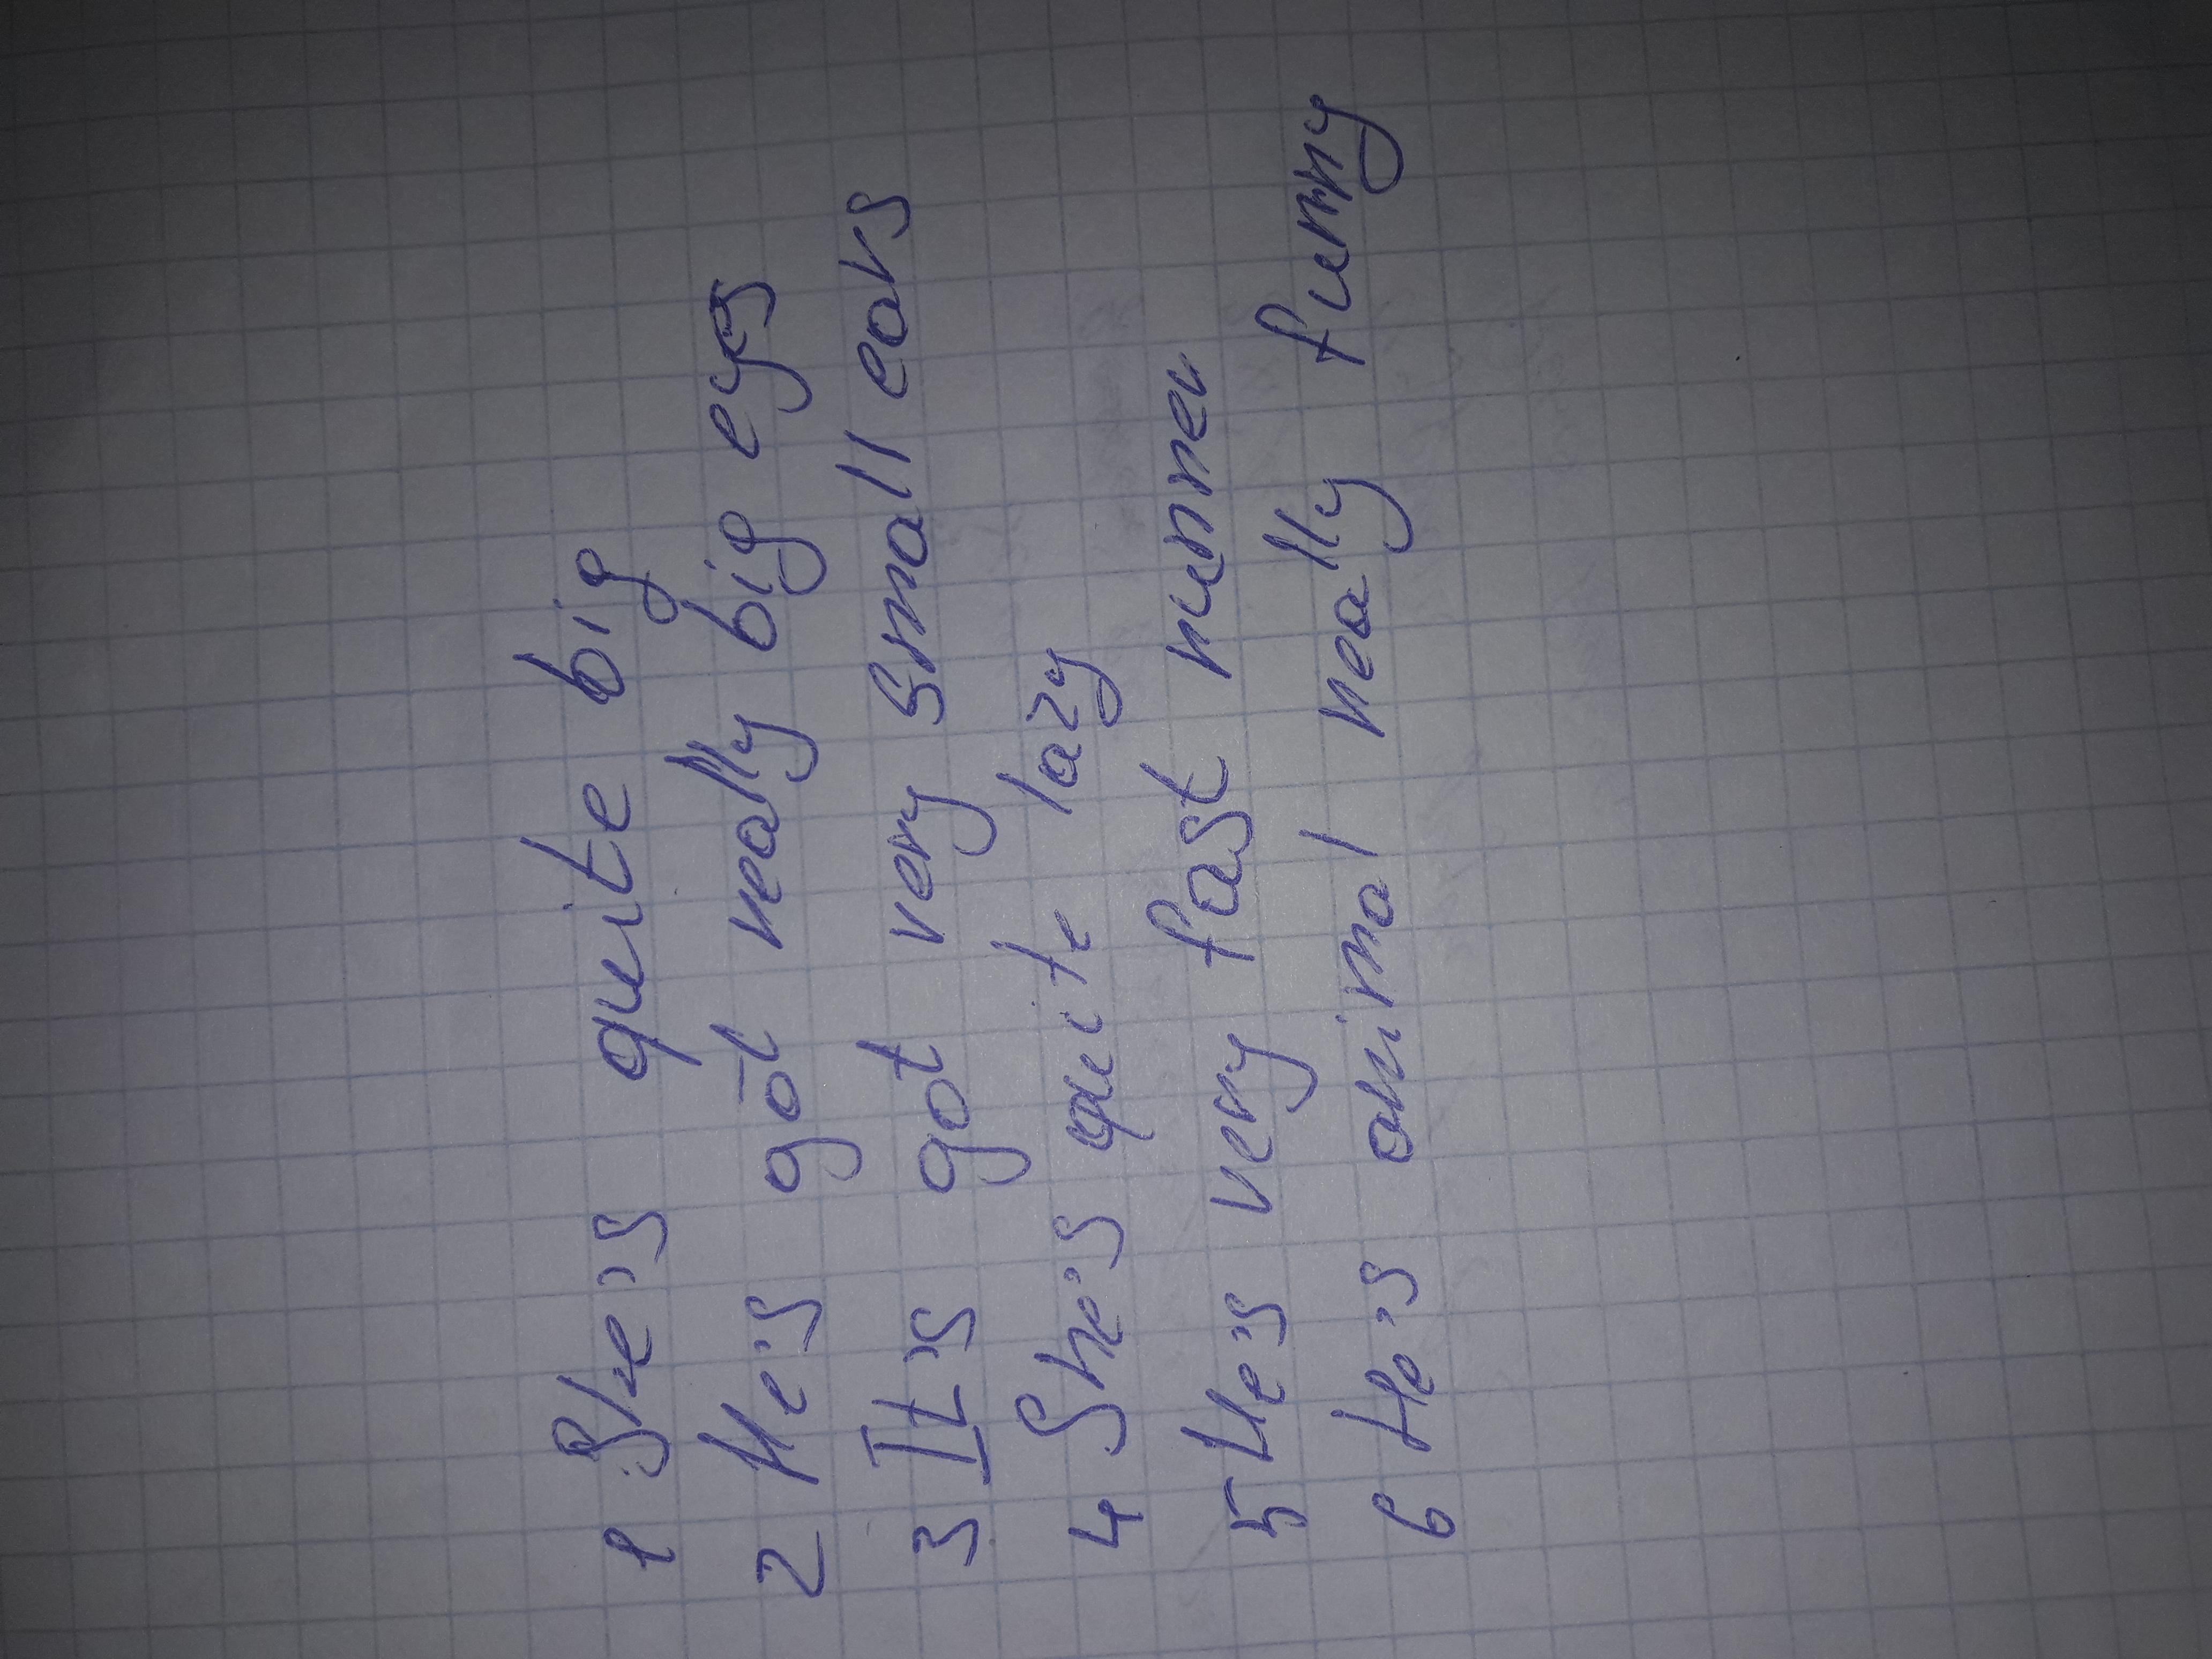 1 She's quite big
2 He's got really big eys
3 It's got very small ears
4 She's quite lazy
5 He's very fast runner
6 He's animal really funny